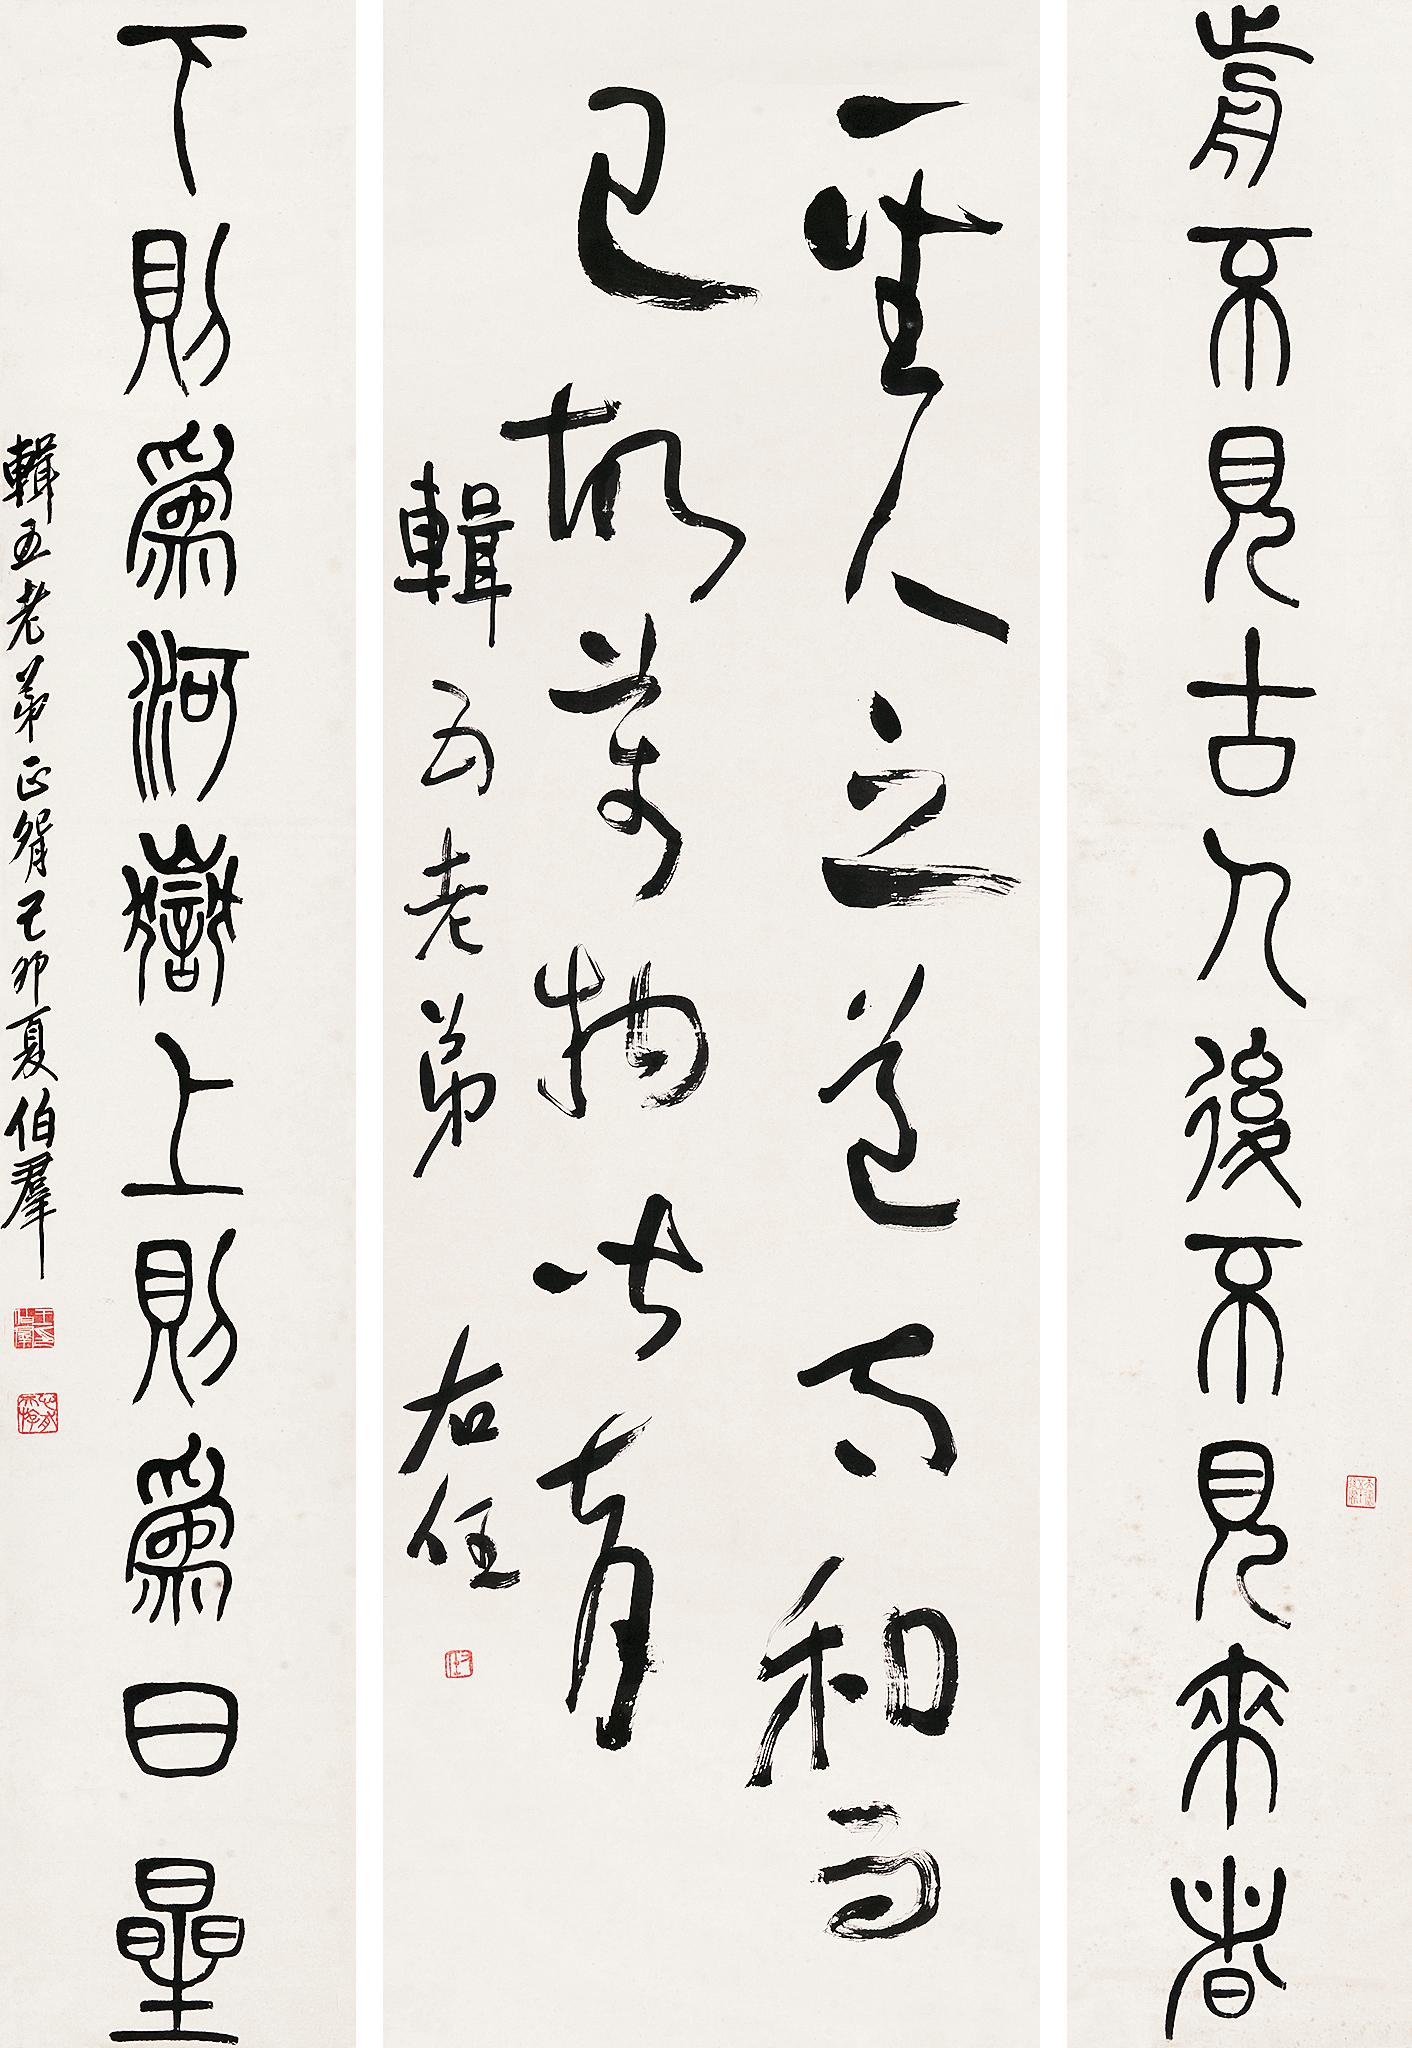 前不見古人後不見來者
一聖人之道和而
已故萬物皆育
輯五老弟 右任
下則為河嶽上則為日星
輯五老弟正腕己卯夏伯羣